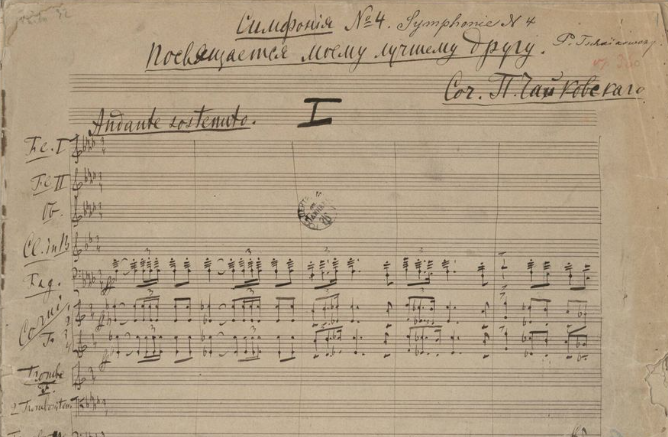 Симфонія №4. Symphonie N 4
Посвящается моему лучшему другу.
Соч. П. Чайковскаго
Andante sostenuto. I
Fl. I
Fl II
Ob.
Cl. in B
Fag.
Corni
F.
Trombe